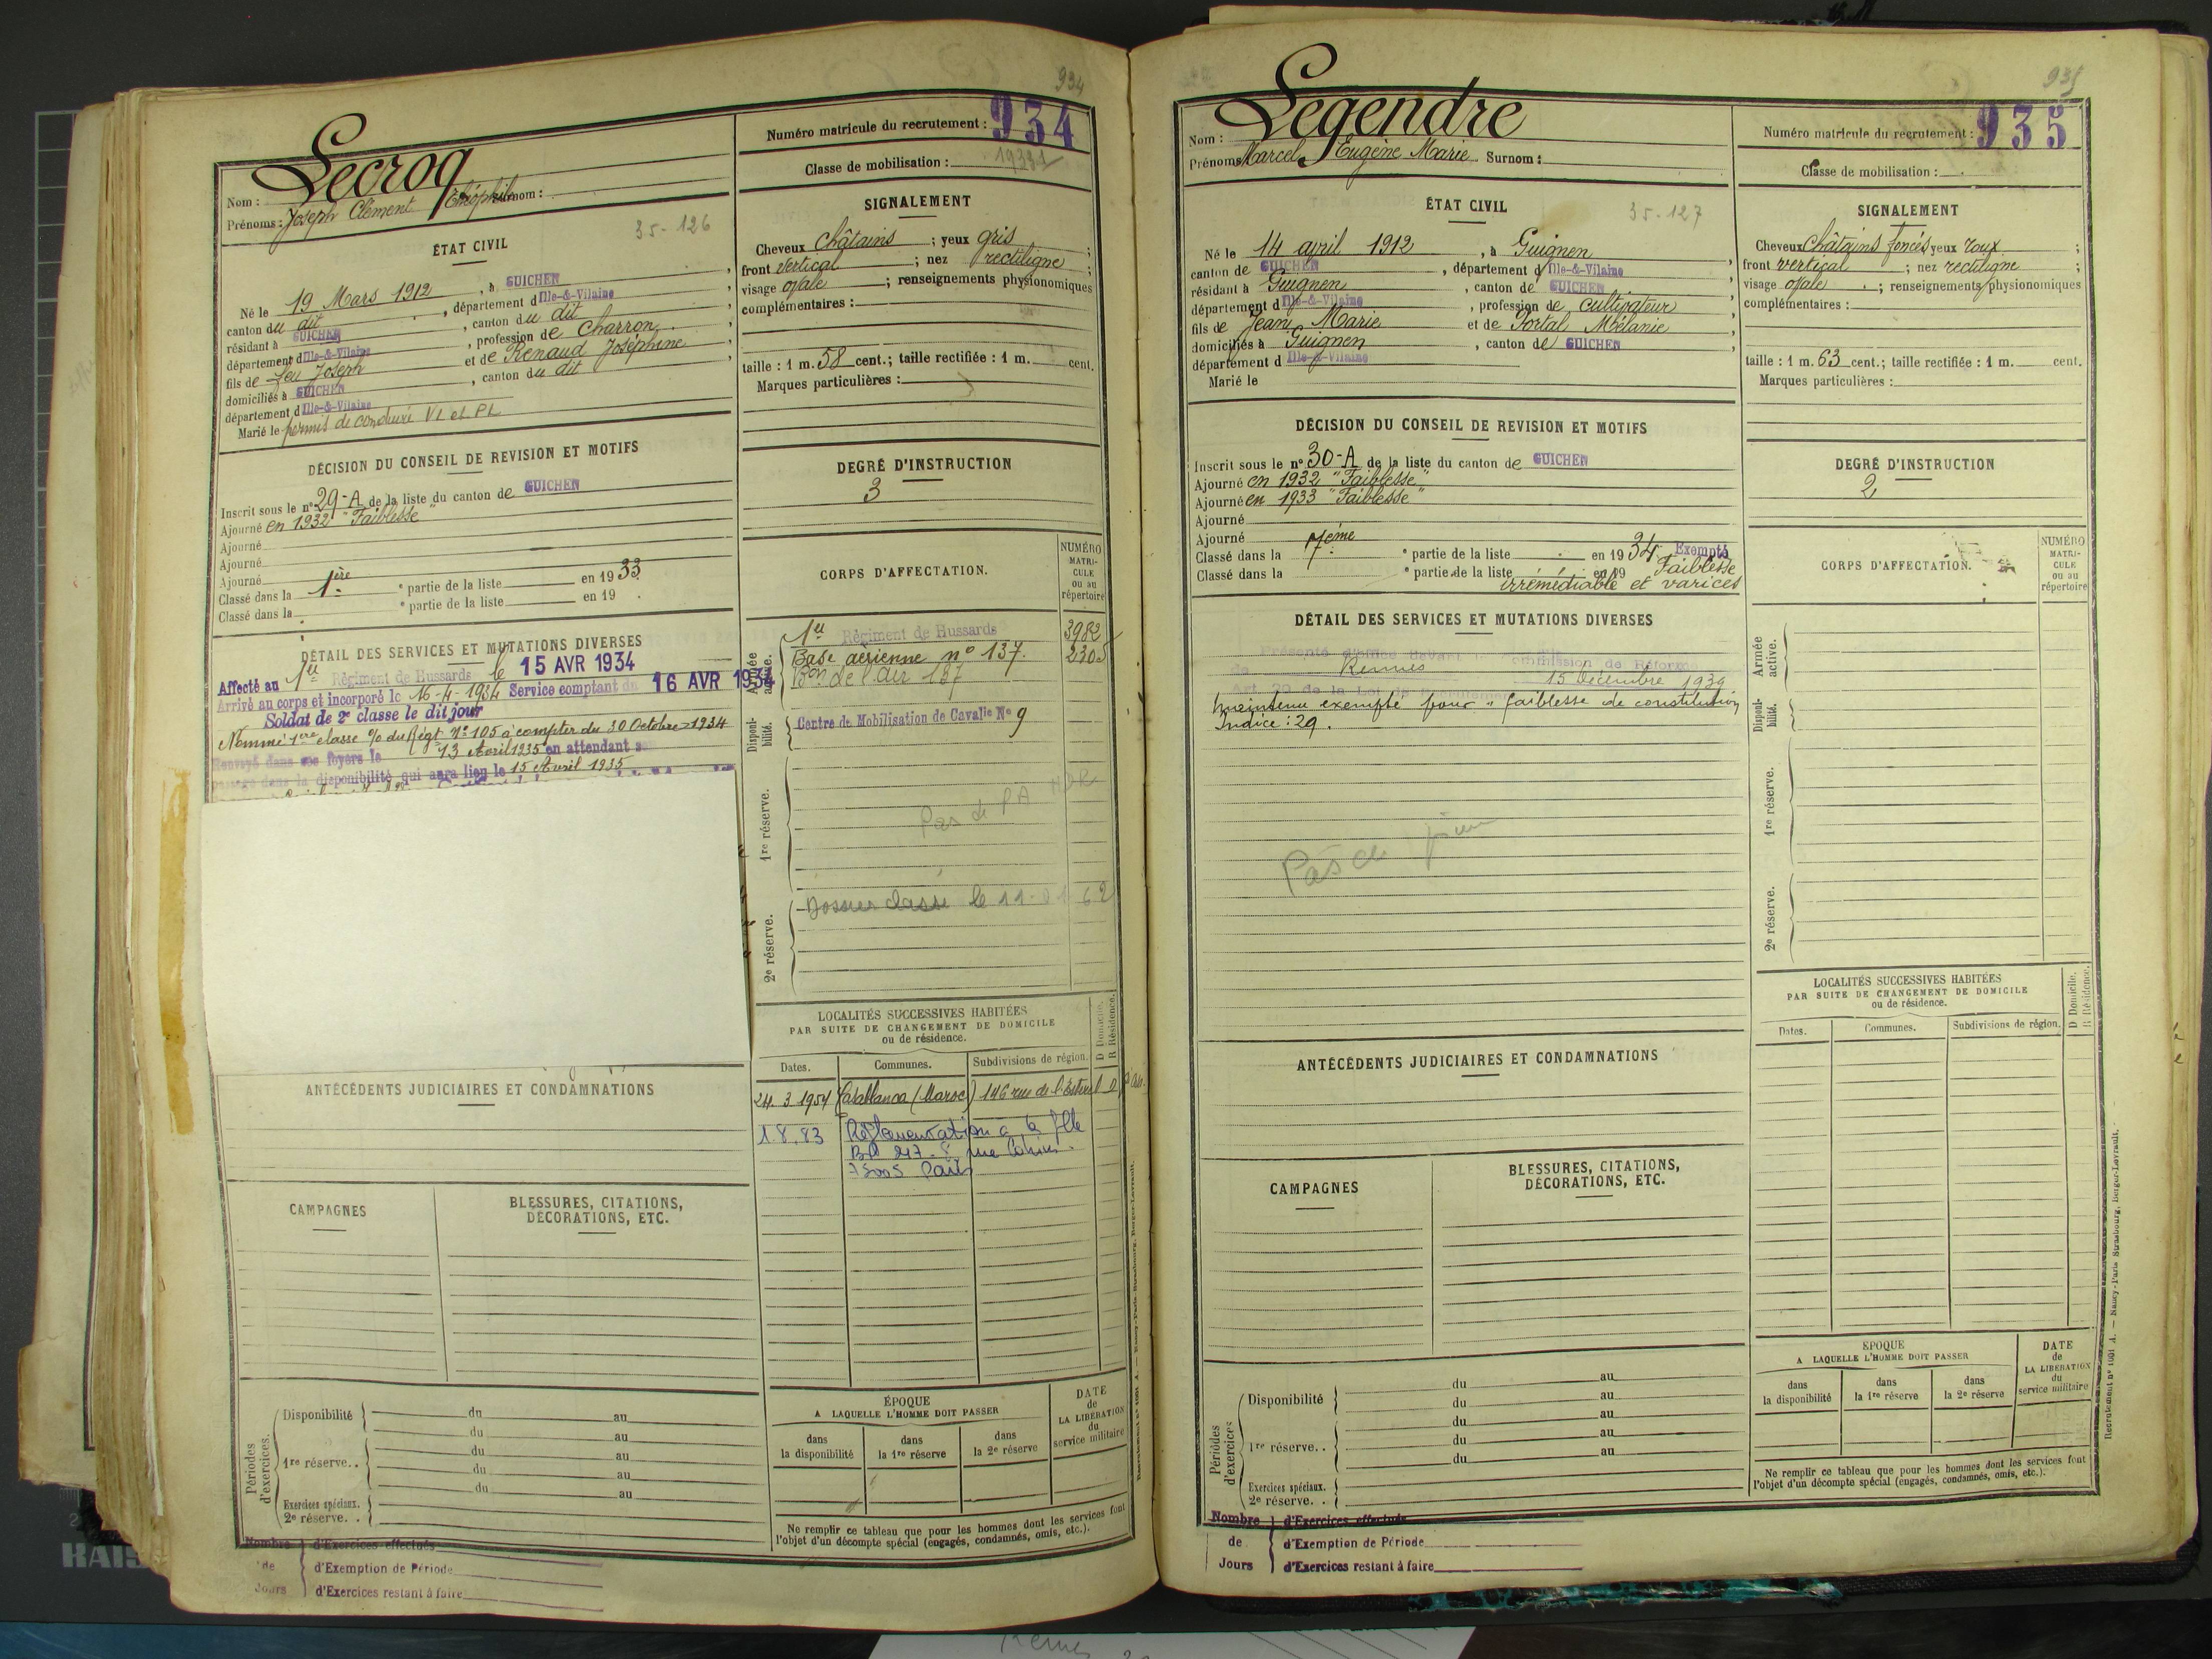 934
Lecroq
Nom :
Prénoms : Joseph Clément Théophile Surnom :
Numéro matricule du recrutement : 934
Classe de mobilisation :
35-126
ÉTAT CIVIL
Né le 19 Mars 1912, à GUICHEN
canton du dit, département d Ille-&-Vilaine
résidant à GUICHEN, canton du dit
département d Ille-&-Vilaine, profession de Charron
fils de feu Joseph et de Renaud Joséphine
domiciliés à GUICHEN, canton du dit
département d Ille-&-Vilaine
Marié le permis de conduire VL et PL
SIGNALEMENT
Cheveux châtains ; yeux gris ;
front vertical ; nez rectiligne ;
visage ovale ; renseignements physionomiques
complémentaires :
taille : 1 m. 58 cent.; taille rectifiée : 1 m. cent.
Marques particulières :
DÉCISION DU CONSEIL DE REVISION ET MOTIFS
Inscrit sous le nº 29-A de la liste du canton de GUICHEN
Ajourné en 1932 "Faiblesse"
Ajourné
Ajourné
Ajourné
Classé dans la 1ère e partie de la liste en 1933
Classé dans la e partie de la liste en 19 .
DEGRÉ D'INSTRUCTION
3
CORPS D'AFFECTATION.
NUMÉRO MATRI-CULE ou au répertoire
DÉTAIL DES SERVICES ET MUTATIONS DIVERSES
Affecté au 1er Régiment de Hussards le 15 AVR 1934
Arrivé au corps et incorporé le 16-4-1934 Service comptant du 16 AVR 1934
Soldat de 2e classe le dit jour
Nommé 1ère classe % du Régt Nº 105 à compter du 30 Octobre 1934
Renvoyé dans ses foyers le 13 Avril 1935 en attendant
passage dans la disponibilité qui aura lieu le 15 Avril 1935
Armée active.
1er Régiment de Hussards 3982
Base aérienne nº 137. 2305
Bon de l'air 137
Disponi-bilité.
Centre de Mobilisation de Cavalie Nº 9
1re réserve.
Pas de PA
2e réserve.
Dossier classé le 11-01-62
LOCALITÉS SUCCESSIVES HABITÉES
PAR SUITE DE CHANGEMENT DE DOMICILE
ou de résidence.
D Domicile. R Résidence.
Dates. Communes. Subdivisions de région.
24. 3 1954 Casablanca (Maroc) 146 rue de l'Estérel D
1.8.83
75005 Paris
ANTÉCÉDENTS JUDICIAIRES ET CONDAMNATIONS
CAMPAGNES
BLESSURES, CITATIONS, DÉCORATIONS, ETC.
Périodes d'exercices.
Disponibilité du au
du au
1re réserve.. du au
du au
du au
Exercices spéciaux.
2e réserve. .
ÉPOQUE
A LAQUELLE L'HOMME DOIT PASSER
dans la disponibilité
dans la 1re réserve
dans la 2e réserve
DATE de LA LIBÉRATION du service militaire
Ne remplir ce tableau que pour les hommes dont les services font
l'objet d'un décompte spécial (engagés, condamnés, omis, etc.).
Nombre d'Exercices effectués
de d'Exemption de Période
Jours d'Exercices restant à faire
935
Legendre
Nom :
Prénoms Marcel Eugène Marie Surnom :
Numéro matricule du recrutement : 935
Classe de mobilisation :
ÉTAT CIVIL
35-127
Né le 14 avril 1912, à Guignen
canton de GUICHEN, département d Ille-&-Vilaine
résidant à Guignen, canton de GUICHEN
département d Ille-&-Vilaine, profession de cultivateur
fils de Jean Marie et de Portal Mélanie
domiciliés à Guignen, canton de GUICHEN
département d Ille-&-Vilaine
Marié le
SIGNALEMENT
Cheveux châtains foncés yeux roux ;
front vertical ; nez rectiligne ;
visage ovale ; renseignements physionomiques
complémentaires :
taille : 1 m. 63 cent.; taille rectifiée : 1 m. cent.
Marques particulières :
DÉCISION DU CONSEIL DE REVISION ET MOTIFS
Inscrit sous le nº 30-A de la liste du canton de GUICHEN
Ajourné en 1932 "Faiblesse"
Ajourné en 1933 "Faiblesse"
Ajourné
Ajourné
Classé dans la 7ème e partie de la liste en 1934 Exempté
Classé dans la e partie de la liste en 19 Faiblesse
irrémédiable et varices
DEGRÉ D'INSTRUCTION
2
CORPS D'AFFECTATION.
NUMÉRO MATRI-CULE ou au répertoire
DÉTAIL DES SERVICES ET MUTATIONS DIVERSES
Présenté d'office devant la commission de Réforme
de Rennes 15 décembre 1939
Art. 20 de la Loi de Recrutement
maintenu exempté pour "faiblesse de constitution
Indice : 29.
Pas de
Armée active.
Disponi-bilité.
1re réserve.
2e réserve.
LOCALITÉS SUCCESSIVES HABITÉES
PAR SUITE DE CHANGEMENT DE DOMICILE
ou de résidence.
D Domicile. R Résidence.
Dates. Communes. Subdivisions de région.
ANTÉCÉDENTS JUDICIAIRES ET CONDAMNATIONS
CAMPAGNES
BLESSURES, CITATIONS, DÉCORATIONS, ETC.
Périodes d'exercices
Disponibilité du au
du au
1re réserve. . du au
du au
du au
Exercices spéciaux.
2e réserve. .
ÉPOQUE
A LAQUELLE L'HOMME DOIT PASSER
dans la disponibilité
dans la 1re réserve
dans la 2e réserve
DATE de LA LIBÉRATION du service militaire
Ne remplir ce tableau que pour les hommes dont les services font
l'objet d'un décompte spécial (engagés, condamnés, omis, etc.).
Nombre d'Exercices effectués
de d'Exemption de Période
Jours d'Exercices restant à faire
Recrutement nº 1001 A. — Nancy-Paris-Strasbourg, Berger-Levrault.